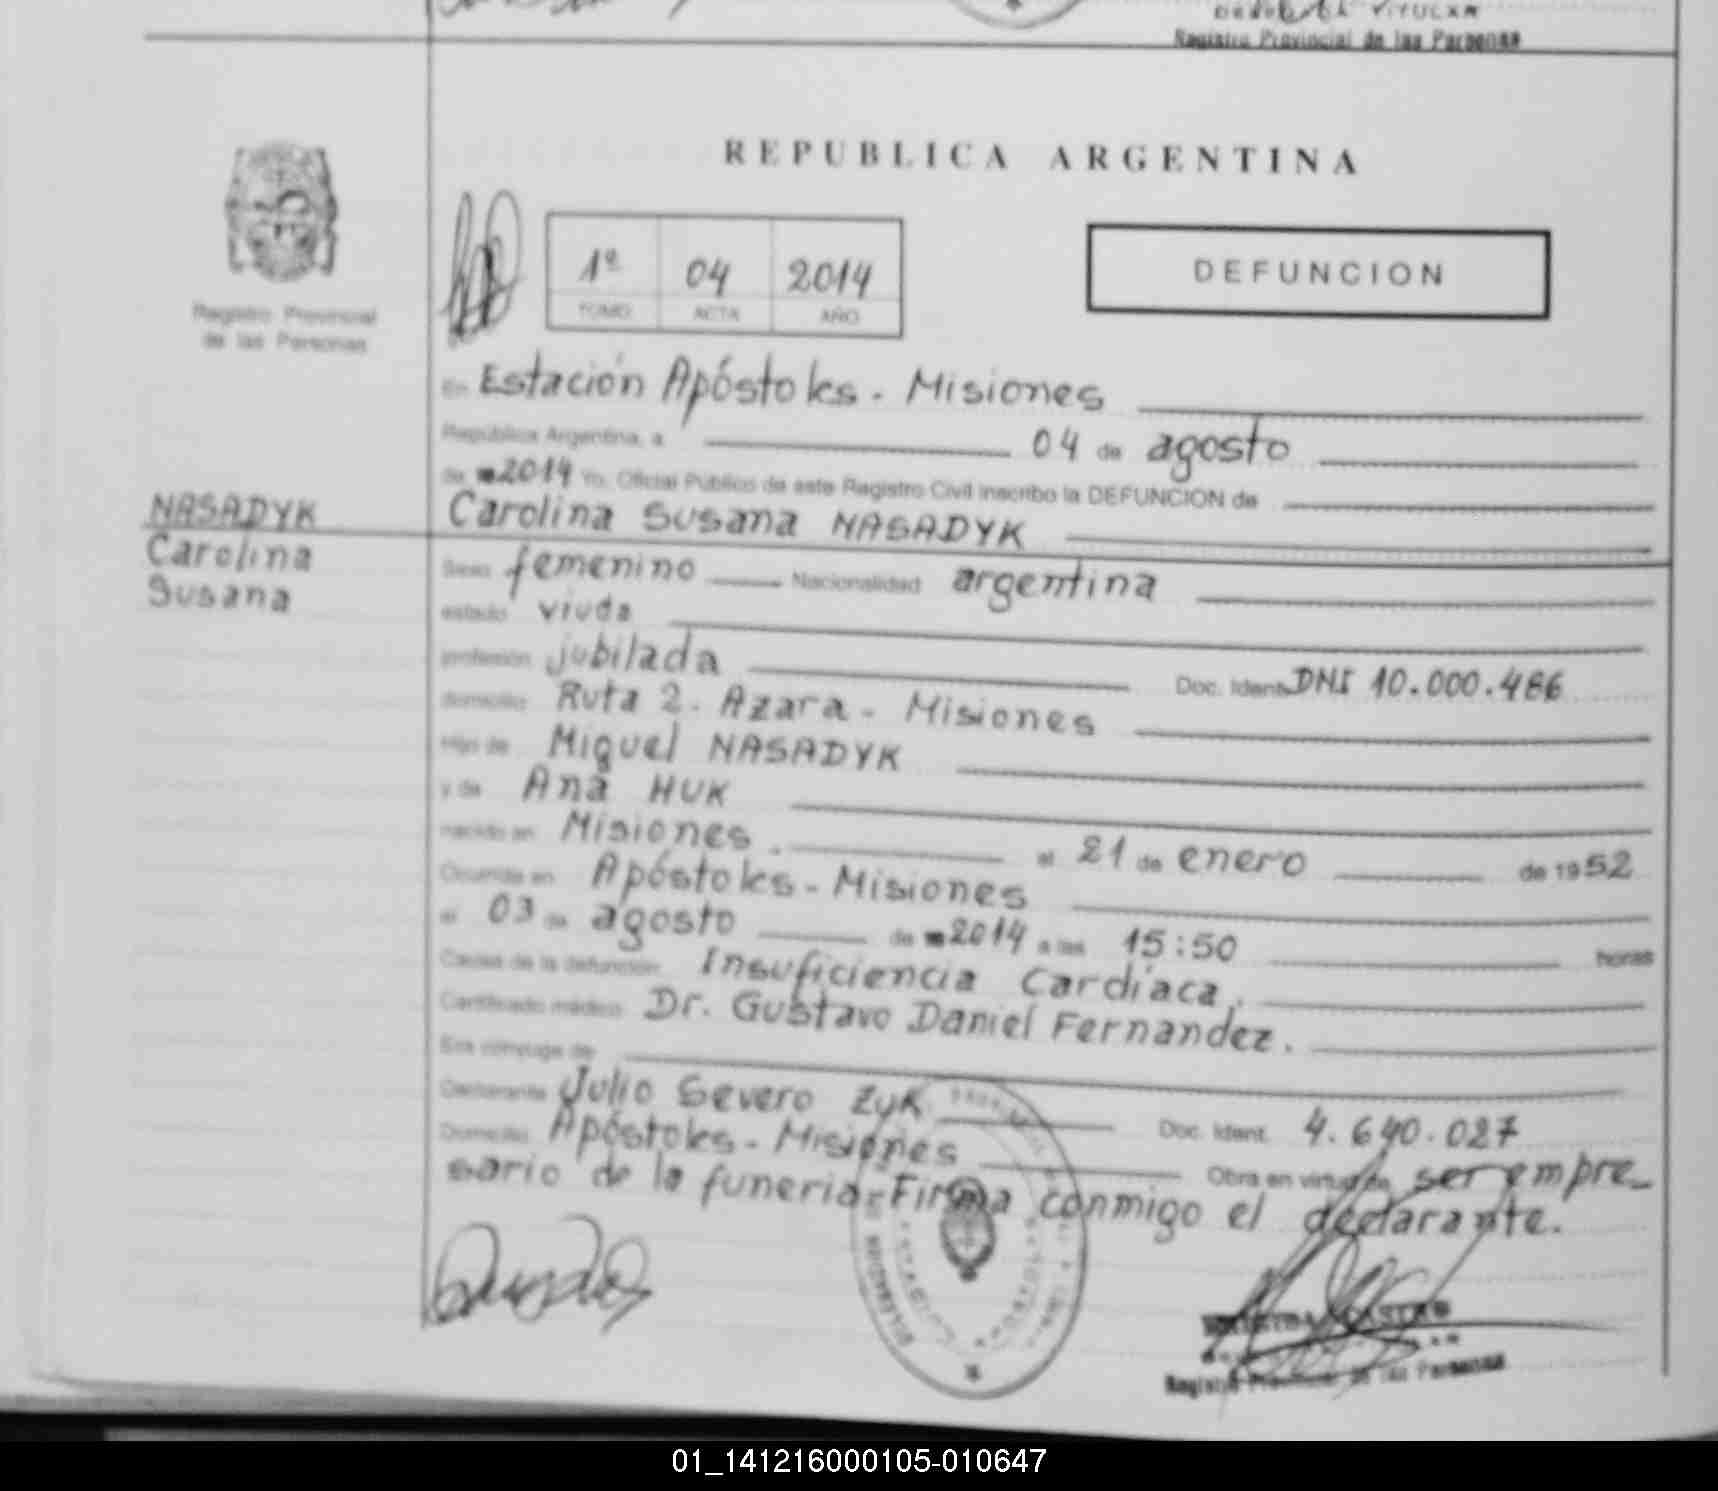 Registro Provincial de las Personas
REPUBLICA ARGENTINA
1º 04 2014
TOMO ACTA AÑO
DEFUNCION
Registro Provincial
de las Personas
En Estación Apóstoles - Misiones
República Argentina, a 04 de agosto
de 2014 Yo, Oficial Público de este Registro Civil inscribo la DEFUNCION de
NASADYK
Carolina
Susana
Carolina Susana NASADYK
Sexo femenino Nacionalidad argentina
estado viuda
profesión jubilada Doc. Ident. DNI 10.000.486
domicilio Ruta 2. Azara - Misiones
Hijo de Miguel NASADYK
y de Ana HUK
nacido en Misiones. el 21 de enero de 1952
Ocurrida en Apóstoles - Misiones
el 03 de agosto de 2014 a las 15:50 horas
Causa de la defunción Insuficiencia Cardíaca.
Certificado médico Dr. Gustavo Daniel Fernandez.
Era cónyuge de
Declarante Julio Severo Zyk Doc. Ident. 4.640.027
Domicilio Apóstoles - Misiones Obra en virtud de ser empre-
sario de la funeria - Firma conmigo el declarante.
Registro Provincial de las Personas
01_141216000105-010647